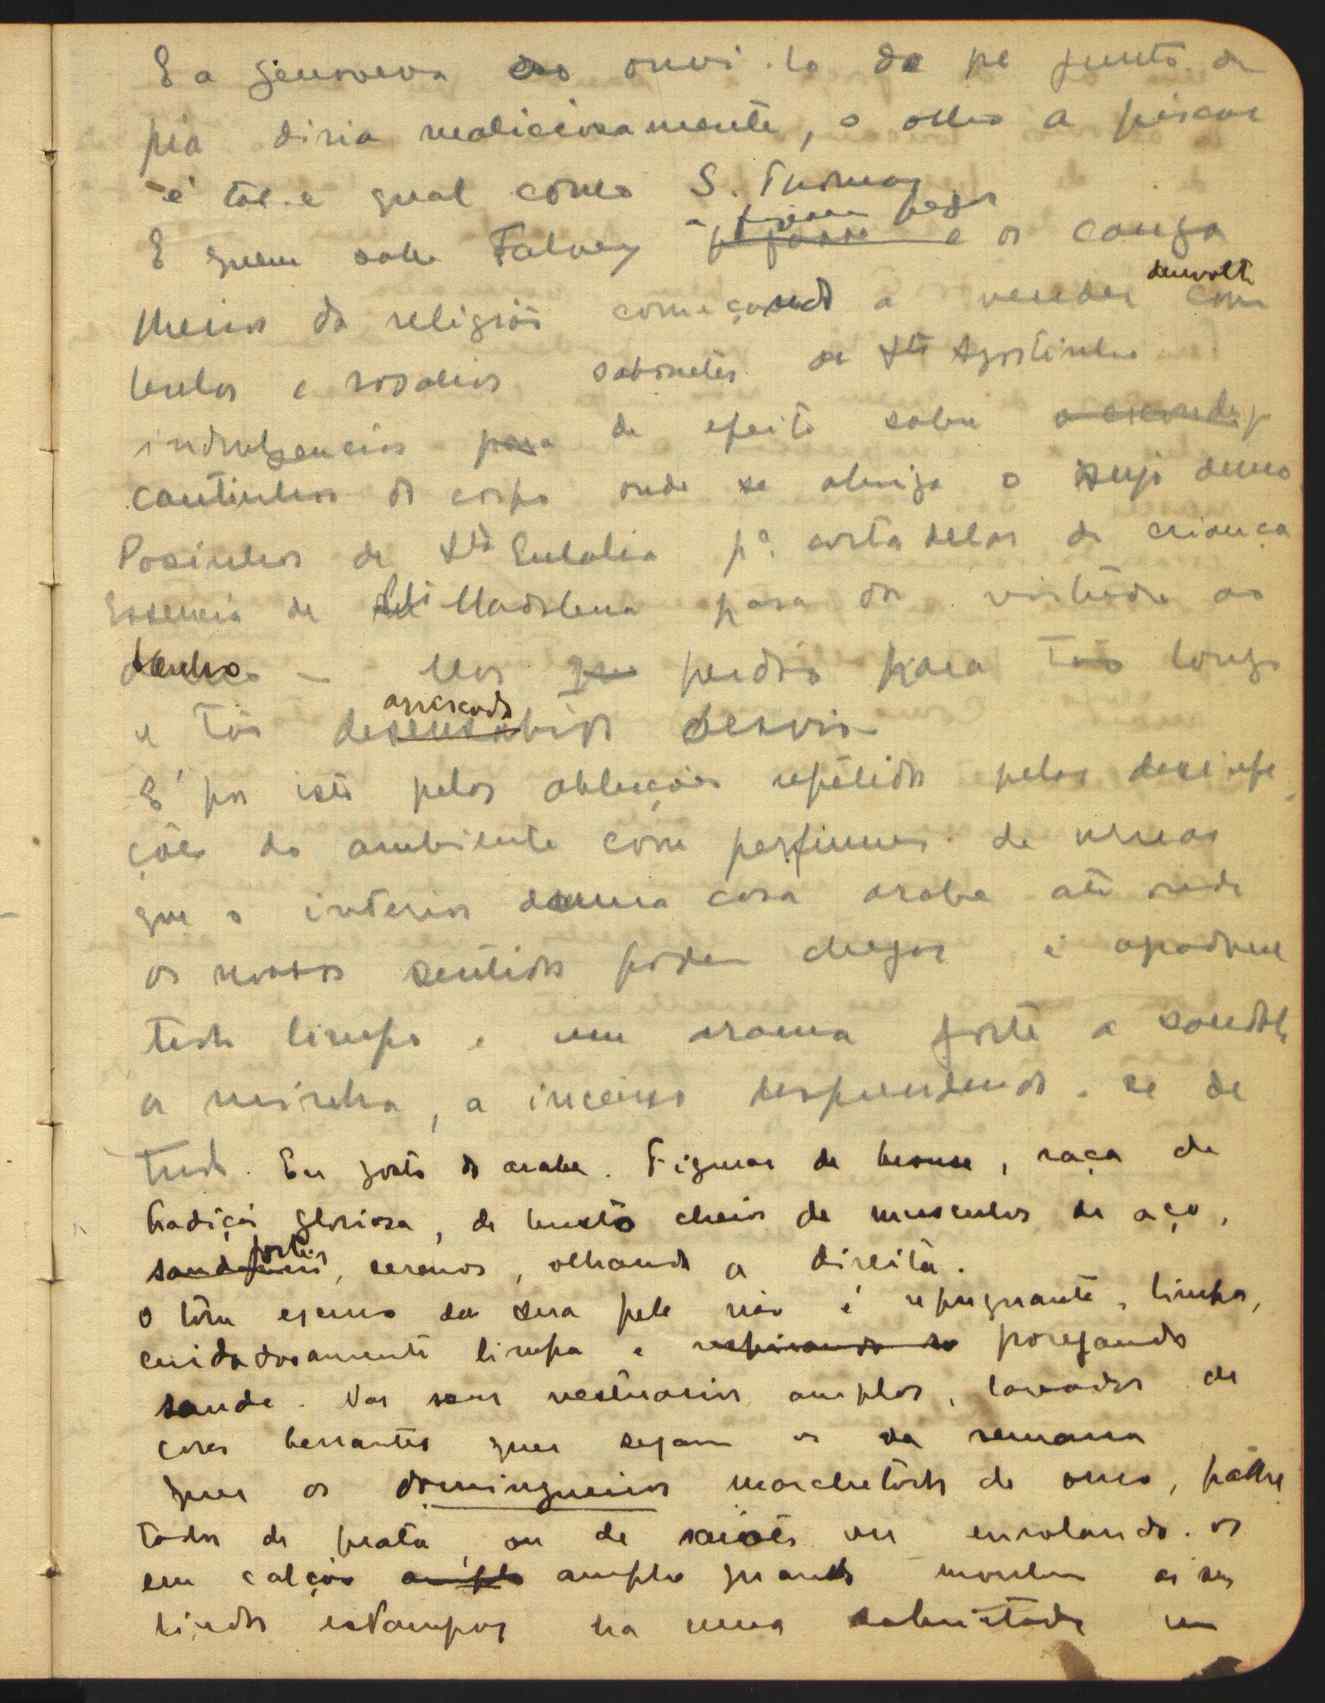 E a Genoveva ao ouvi-lo de pé junto da
pia diria maliciosamente, o olho a piscar
- é tal e qual como S. Thomaz
E quem sabe Talvez a fizessem pegar e os conga
desvolt
nheiros da religião começando a vender com
bentos e rosarios sabonetes de Stº Agostinho
indulgencias para de efeito sobre
cantinhos do corpo onde se abriga o sujo demo
Pósinhos de Stª Eulalia pª. de criança
Essencia de Stª Madalena para dar virtude ao
banho - Mas perdão para tão longo
arriscado
e tão desensabido desvio
E' por isto pelas abluções repetidas pelas desinfe
ções do ambiente com perfumes de
que o interior duma casa arabe até onde
os nossos sentidos podem chegar é
tudo limpo e um aroma forte a sandalo
a mirrha, a incenso desprendendo-se de
tudo. Eu gosto do arabe. Figuras de bronze, raça de
tradição gloriosa, de busto cheios de musculos de aço,
fortes
saudaveis, serenos, olhando a direita.
O tom escuro da sua pele não é repugnante, limpa,
cuidadosamente limpa e respirando so porejando
saude. Nos seus vestuarios amplos, lavados de
cores berrantes quer sejam os da semana
quer os domingueiros marchetados de ouro,
tados de prata, ou de saiotes ou enrolando-os
em calção amplo amplo quando montam os seus
lindos estampas ha uma sobriedade um